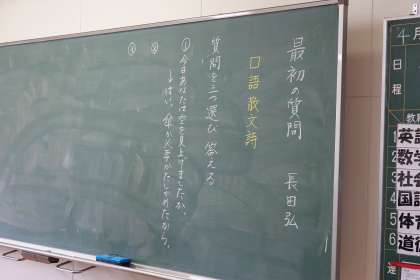 最初の質問　長田弘
口語散文詩
質問を三つ選び答える
①今日あなたは空を見上げましたか。
↓はい、
②
③
4月
日程
英語
数学
社会
国語
体育
道徳